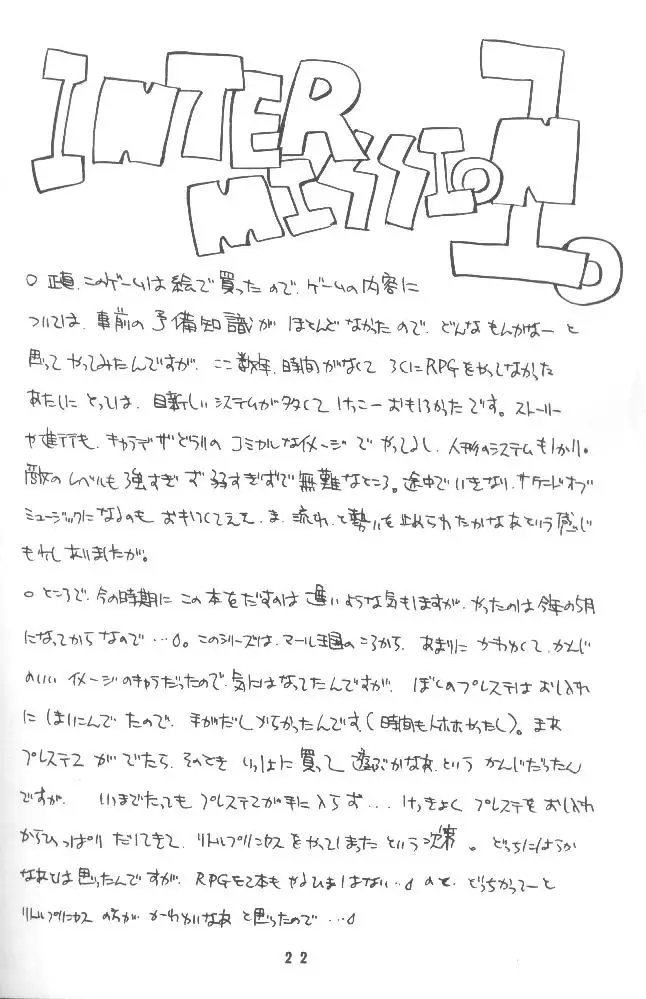 INTER
MISSION
○ 正直、このゲームは絵で買ったので、ゲームの内容に
ついては、事前の予備知識がほとんどなかったので、どんなもんかなーと
思ってやってみたんですが、ここ数年、時間がなくてろくにRPGをやってなかった
あたしにとっては、目新しいシステムが多くてけっこーおもしろかったです。ストーリー
や進行も、キャラデザどうりのコミカルなイメージでやってよし、人形のシステムも
敵のレベルも強すぎず弱すぎずで無難なところ。途中でいきなり、サウンドオブ
ミュージックになるのも おもしろくてええ、ま、流れと勢いを止められたかなあという感じ
もしありましたが。
○ ところで、今の時期にこの本をだすのは遅いような気もしますが、やったのは今年の5月
になってからなので…。このシリーズは、マール王国のころから、あまりにかわゆくて、かんじ
のいいイメージのキャラだったので、気にはなってたんですが、ぼくのプレステはおしいれ
にはいってたので、手がだしづらかったんです(時間もなかったし)。まあ
プレステ2がでたら、そのときいっしょに買って遊ぶかなあ、というかんじだったん
ですが、いつまでたってもプレステ2が手に入らず…けっきょくプレステをおしいれ
からひっぱりだしてきて、リトルプリンセスをやってしまったという次第。どっちにしようか
なあとは思ったんですが、RPGを2本もやるひまはない…ので、どっちかってーと
リトルプリンセスの方がかーわいいなあと思ったので…
22